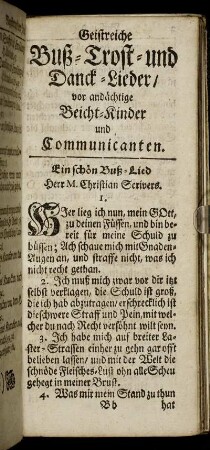 Geistreiche
Buß-Trost-und
Danck-Lieder/
vor andächtige
Beicht-Kinder
und
Communicanten.
Ein schön Buß-Lied
Herr M. Christian Scrivers.
1.
HJer lieg ich nun, mein GOtt,
zu deinen Füssen, und bin be-
reit für meine Schuld zu
büssen; Ach schaue mich mit Gnaden-
Augen an, und straffe nicht, was ich
nicht recht gethan.
2. Jch muß mich zwar vor dir itzt
selbst verklagen, die Schuld ist groß,
die ich hab abzutragen/ erschrecklich ist
die schwere Straff und Pein, mit wel-
cher du nach Recht versöhnt wilt seyn.
3. Jch habe mich auf breiter La-
ster-Strassen einher zu gehn gar offt
belieben lassen/ und mit der Welt die
schnöde Fleisches-Lust ohn alle Scheu
gehegt in meiner Brust.
4. Was mir mein Stand zu thun
Bb hat